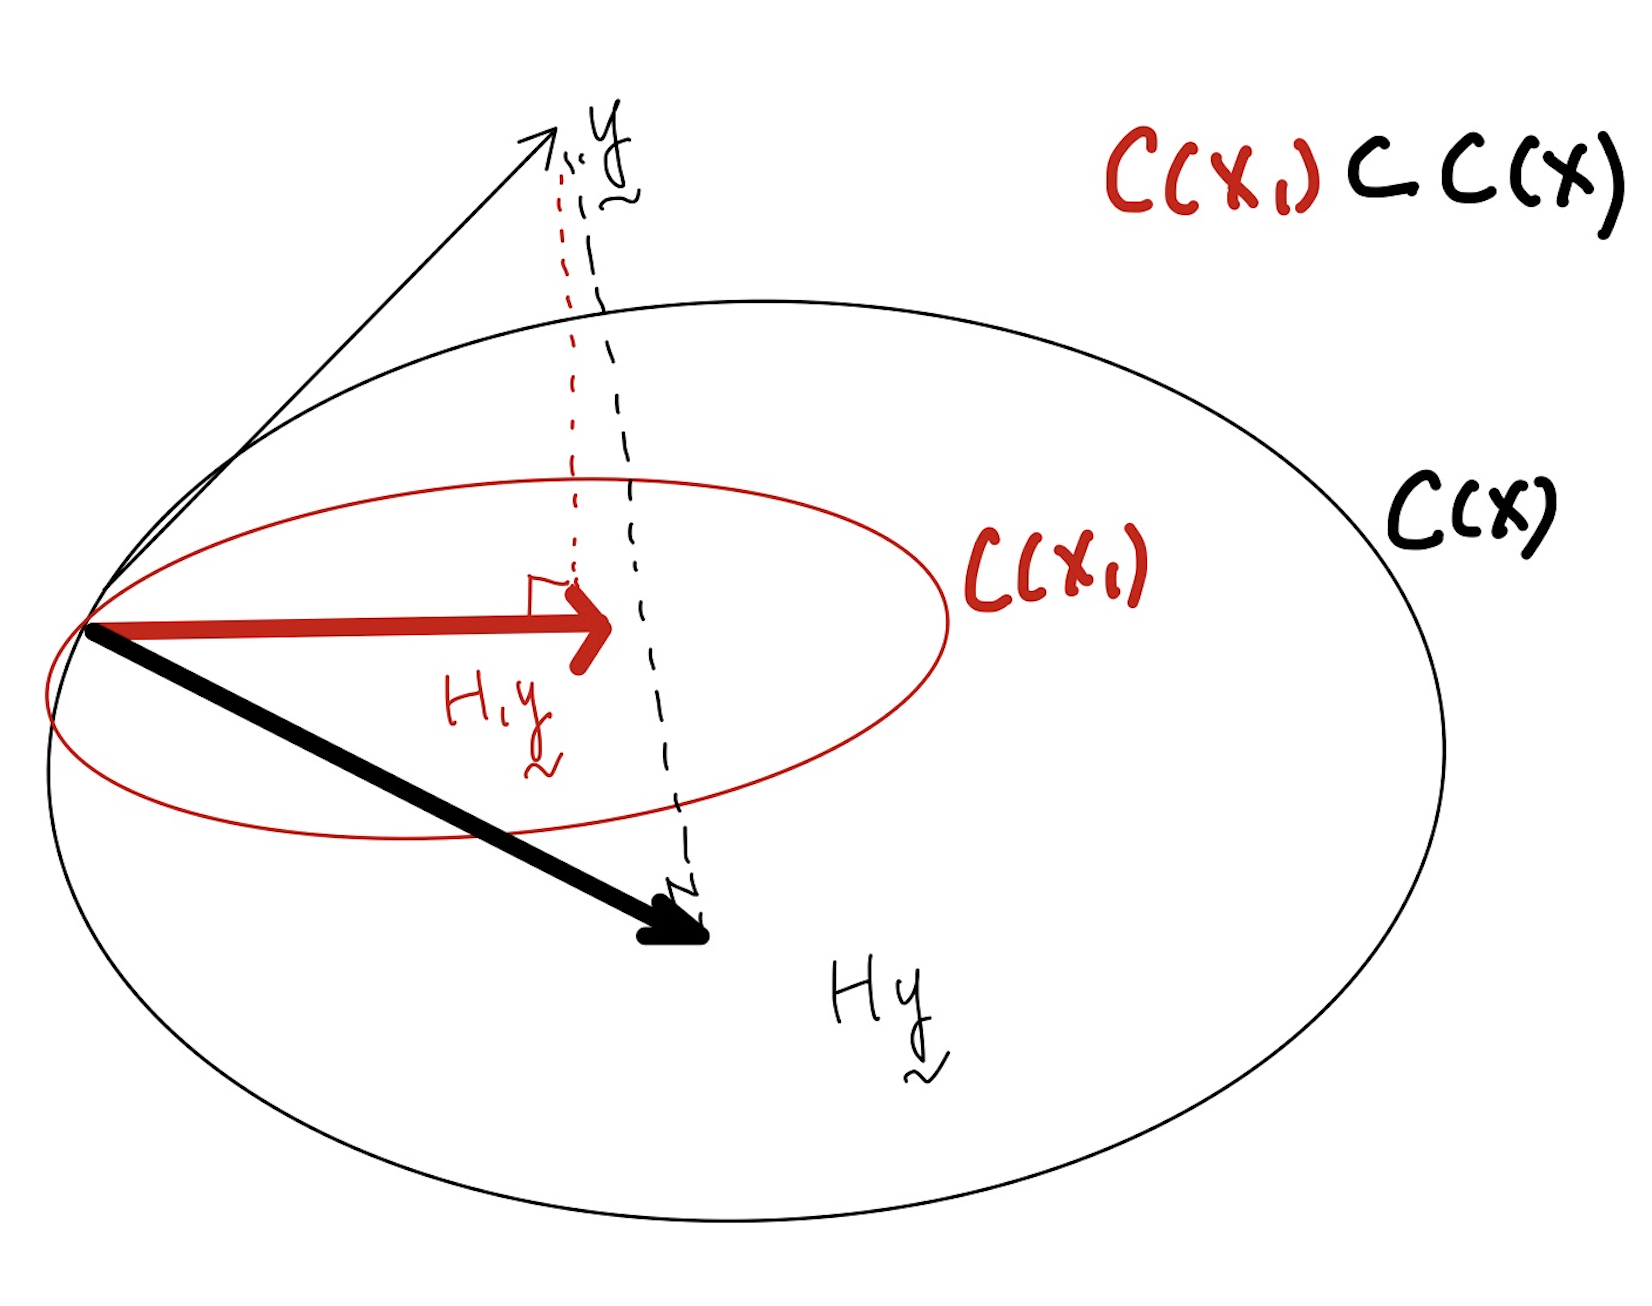 y
C(X₁) ⊂ C(X)
C(X)
C(X₁)
H₁y
Hy